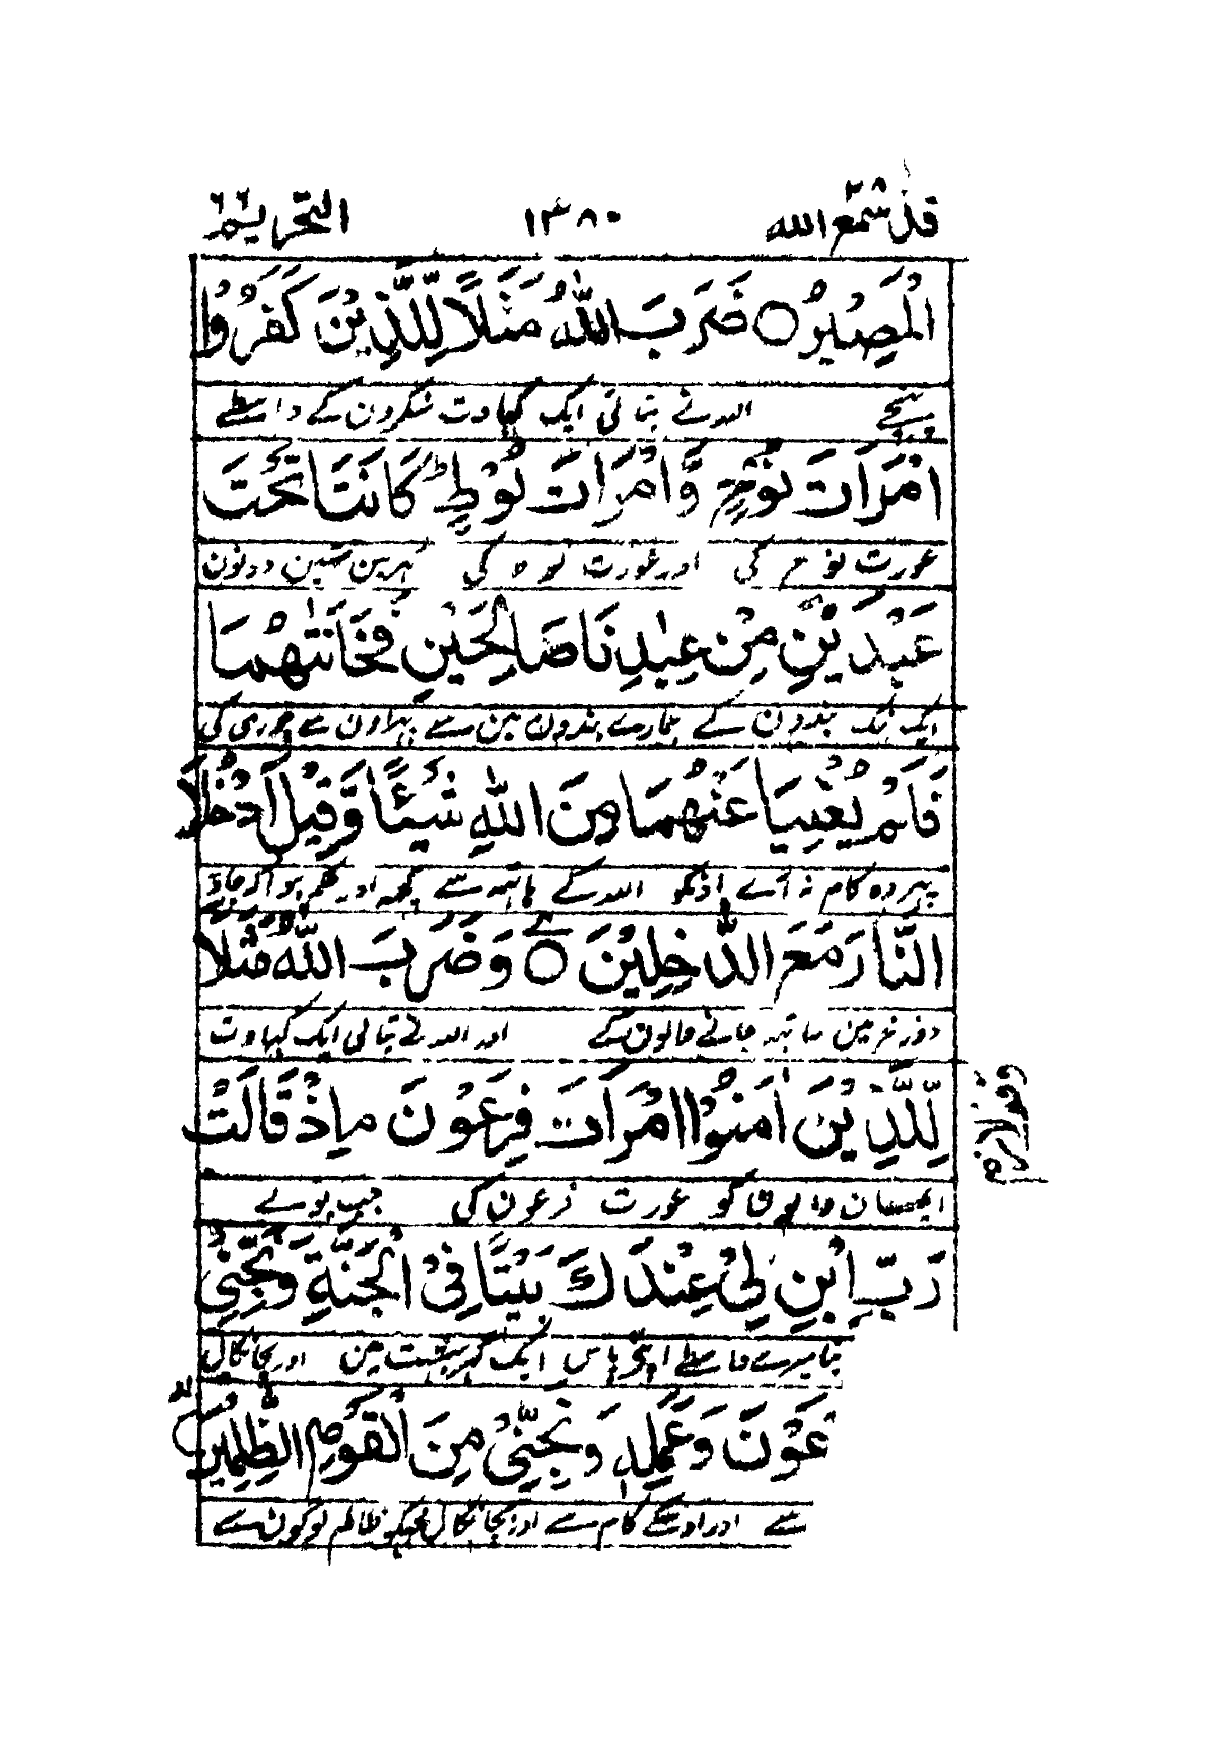 قد سمع الله ٢٨ ١٣٨٠ التحريم ٦٦
الْمَصِيْرُ ○ ضَرَبَ اللّٰهُ مَثَلًا لِّلَّذِيْنَ كَفَرُوا
پہنچے اللہ نے بتائی ایک کہاوت منکرون کے واسطے
امْرَاَتَ نُوْحٍ وَّامْرَاَتَ لُوْطٍ ؕ كَانَتَا تَحْتَ
عورت نوح کی اور عورت لوط کی گہر مین تھین دونون
عَبْدَيْنِ مِنْ عِبَادِنَا صَالِحَيْنِ فَخَانَتٰهُمَا
ایک نیک بندون کے ہمارے بندون مین سے پہر اون سے چوری کی
فَلَمْ يُغْنِيَا عَنْهُمَا مِنَ اللّٰهِ شَيْـًٔا وَّقِيْلَ ادْخُلَا
پہر وہ کام نہ آے اونکو اللہ کے ہاتہہ سے کچہہ اور حکم ہوا کہ جاؤ
النَّارَ مَعَ الدّٰخِلِيْنَ ○ وَضَرَبَ اللّٰهُ مَثَلًا
دوزخ مین ساتہہ جانے والون کے اور اللہ نے بتائی ایک کہاوت
لِّلَّذِيْنَ اٰمَنُوا امْرَاَتَ فِرْعَوْنَ ۘ اِذْ قَالَتْ
وقف لازم
ایمان والون کو عورت فرعون کی جب بولے
رَبِّ ابْنِ لِيْ عِنْدَكَ بَيْتًا فِي الْجَنَّةِ وَنَجِّنِيْ
بنا میرے واسطے اپنے پاس ایک گہر بہشت مین اور بچا نکال
عَوْنَ وَعَمَلِهٖ وَنَجِّنِيْ مِنَ الْقَوْمِ الظّٰلِمِيْنَ
سے اور اوسکے کام سے اور بچا نکال مجہکو ظالم لوگون سے